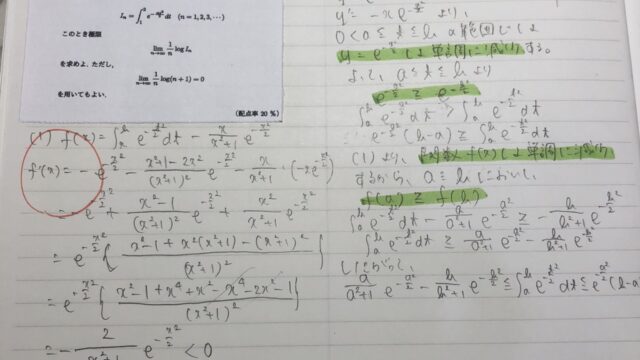 I_n = ∫_1^2 e^{-nt²/2} dt (n = 1, 2, 3, ⋯)
このとき極限
lim_{n→∞} 1/n log I_n
を求めよ、ただし、
lim_{n→∞} 1/n log(n+1) = 0
を用いてもよい.
(配点率 20 %)
(1) f(x) = ∫_x^b e^{-t²/2} dt - x/(x²+1) e^{-x²/2}
f'(x) = - e^{-x²/2} - (x²+1-2x²)/(x²+1)² e^{-x²/2} - x/(x²+1) · (-x e^{-x²/2})
= -e^{-x²/2} + (x²-1)/(x²+1)² e^{-x²/2} + x²/(x²+1) e^{-x²/2}
= e^{-x²/2} { (x²-1+x²(x²+1)-(x²+1)²)/(x²+1)² }
= e^{-x²/2} { (x²-1+x⁴+x²-x⁴-2x²-1)/(x²+1)² }
= - 2 e^{-x²/2} < 0
y' = -x e^{-x²/2} より、
y = e^{-x²/2} は単調に減少する。
よって、a ≦ t ≦ b より
∫_a^b e^{-a²/2} dt ≧ ∫_a^b e^{-t²/2} dt
∴ e^{-a²/2} (b-a) ≧ ∫_a^b e^{-t²/2} dt
(1) より、関数 f(x) は単調に減少
するから、a ≦ b において、
f(a) ≧ f(b)
∫_a^b e^{-t²/2} dt - a/(a²+1) e^{-a²/2} ≧ - b/(b²+1) e^{-b²/2}
∫_a^b e^{-t²/2} dt ≧ a/(a²+1) e^{-a²/2} - b/(b²+1) e^{-b²/2}
したがって、
a/(a²+1) e^{-a²/2} - b/(b²+1) e^{-b²/2} ≦ ∫_a^b e^{-t²/2} dt ≦ e^{-a²/2} (b-a